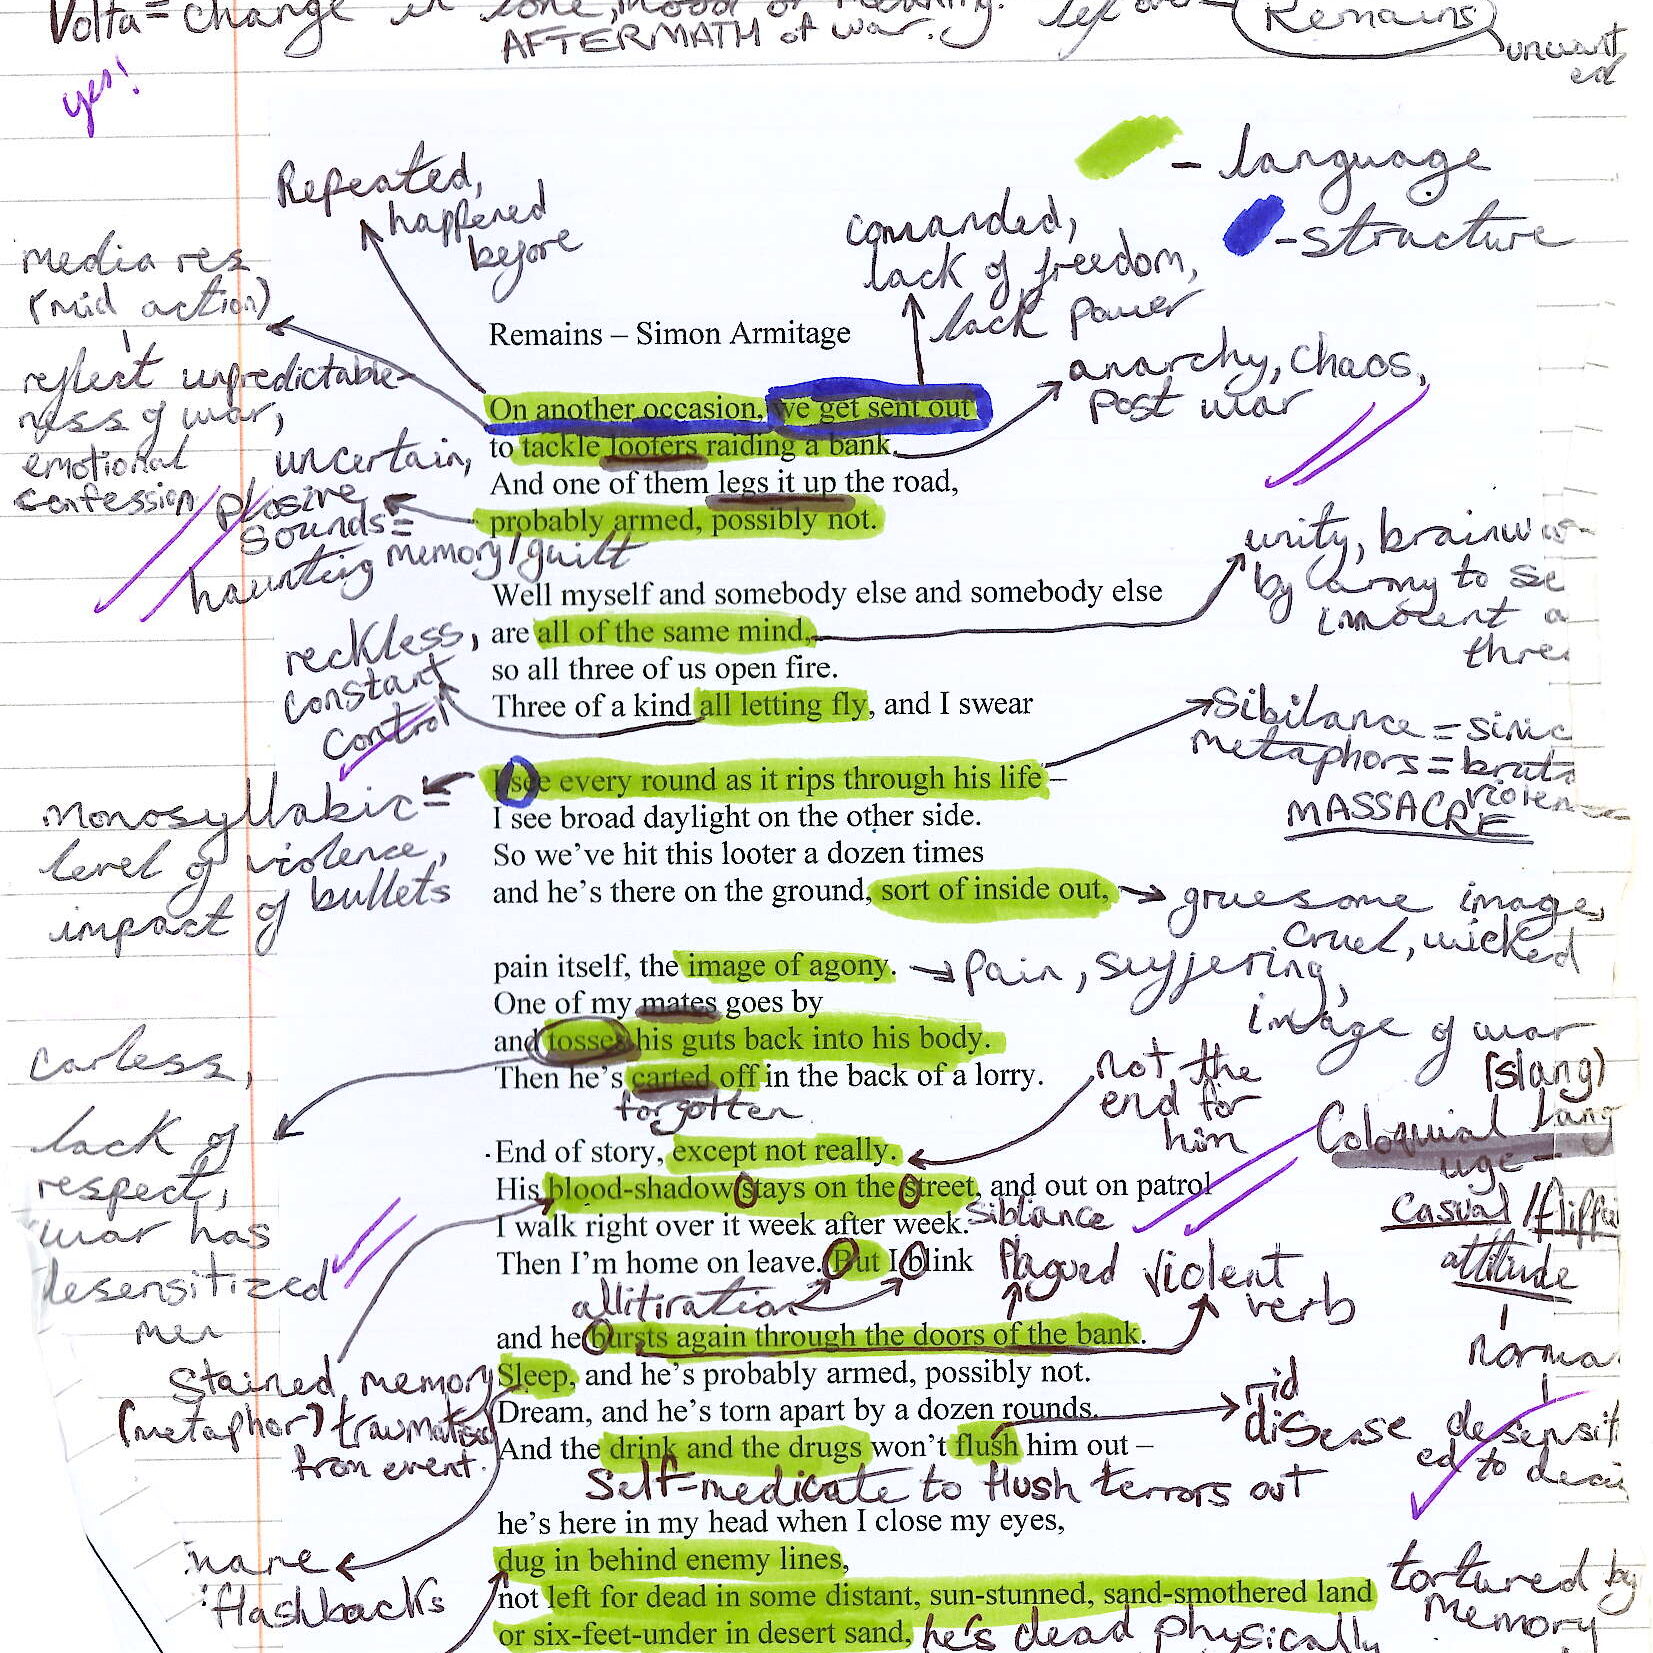 Volta = change in tone, mood or meaning.
AFTERMATH of war.
left over
Remains
unwant
ed
yes!
- language
- structure
Repeated,
happened
before
comanded,
lack of freedom,
lack power
media res
(mid action)
reflect unpredictable-
ness of war,
emotional
confession
anarchy, chaos,
post war
Remains – Simon Armitage
On another occasion, we get sent out
to tackle looters raiding a bank.
And one of them legs it up the road,
probably armed, possibly not.
uncertain,
plosive
sounds =
haunting memory/guilt
unity, brainwas
by army to se
innocent a
three
Well myself and somebody else and somebody else
are all of the same mind,
so all three of us open fire.
Three of a kind all letting fly, and I swear
reckless,
constant
control
Sibilance = sinic
metaphors = bruta
violen
MASSACRE
I see every round as it rips through his life –
I see broad daylight on the other side.
So we've hit this looter a dozen times
and he's there on the ground, sort of inside out,
monosyllabic =
level of violence,
impact of bullets
gruesome image,
cruel, wicked
pain itself, the image of agony.
One of my mates goes by
and tosses his guts back into his body.
Then he's carted off in the back of a lorry.
pain, suffering,
image of war
forgotten
carless,
lack of
respect,
war has
desensitized
men
not the
end for
him
(slang)
Coloquial lang
uge -
casual /flippa
attitude
norma
desensit
ed to deci
End of story, except not really.
His blood-shadow stays on the street, and out on patrol
I walk right over it week after week.
Then I'm home on leave. But I blink
siblance
allitiration
Plagued
violent
verb
and he bursts again through the doors of the bank.
Sleep, and he's probably armed, possibly not.
Dream, and he's torn apart by a dozen rounds.
And the drink and the drugs won't flush him out –
Stained memory
(metaphor) traumatised
from event.
rid
disease
Self-medicate to flush terrors out
he's here in my head when I close my eyes,
dug in behind enemy lines,
not left for dead in some distant, sun-stunned, sand-smothered land
or six-feet-under in desert sand,
flashbacks
tortured by
memory
he's dead physically